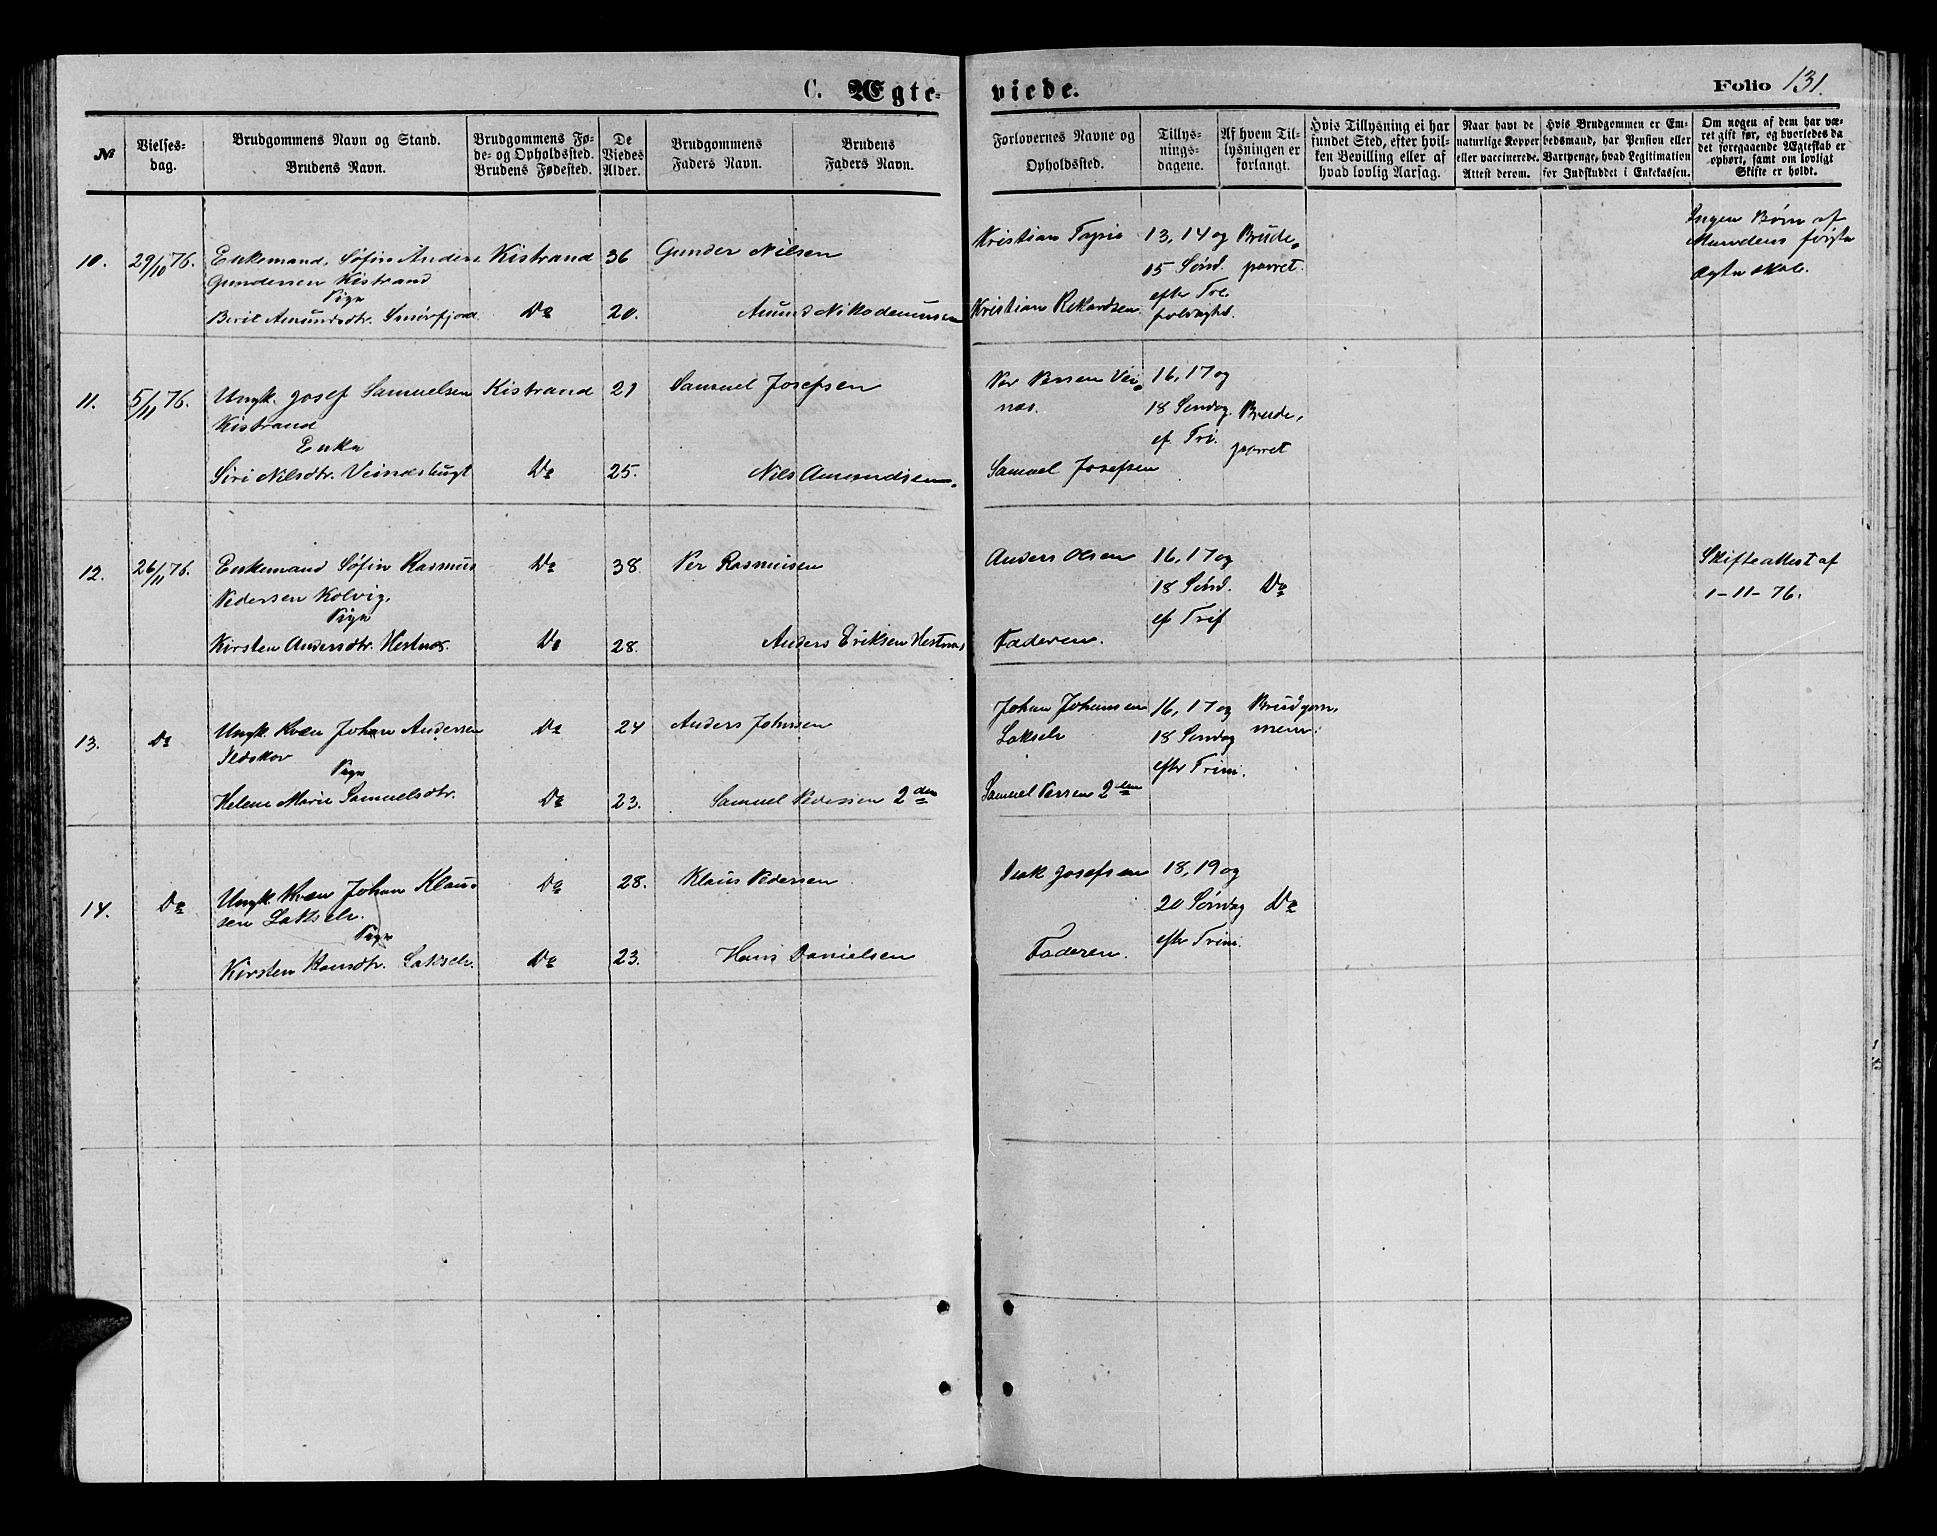 C. Ægte- viede. Folio 131.
№
Vielses-
dag.
Brudgommens Navn og Stand.
Brudens Navn.
Brudgommens Fø-
de- og Opholdssted.
Brudens Fødested.
De
Viedes
Alder.
Brudgommens
Faders Navn.
Brudens
Faders Navn.
Forlovernes Navne og
Opholdssted.
Tillys-
nings-
dagene.
Af hvem Til-
lysningen er
forlangt.
Hvis Tillysning ei har
fundet Sted, efter hvil-
ken Bevilling eller af
hvad lovlig Aarsag.
Naar havt de
naturlige Kopper
eller vaccinerede.
Attest derom.
Hvis Brudgommen er Em-
bedsmand, har Pension eller
Vartpenge, hvad Legitimation
for Indskuddet i Enkekassen.
Om nogen af dem har væ-
ret gift før, og hvorledes da
det foregaaende Ægteskab er
ophørt, samt om lovligt
Skifte er holdt.
10.
29/10 76.
Enkemand, Søfin Anders
Gundersen Kistrand
Pige
Berit Amundsdtr. Smörfjord
Kistrand
Do
36
20.
Gunder Nilsen
Amund Nikodemussen
Kristian
Kristian Rikardsen
13, 14 og
15 Sönd.
efter Tre-
foldighed.
Brude-
parret.
Ingen Börn af
Mandens förste
Ægteskab.
11.
5/11 76.
Ungk. Josef Samuelsen
Kistrand
Enke
Siri Nilsdtr. Veinesbugt
Kistrand
Do
21
25.
Samuel Josefsen
Nils Amundsen.
Per Persen Vei-
nes.
Samuel Josefsen
16, 17 og
18 Søndag
ef Tri.
Brude-
parret
12.
26/11 76.
Enkemand Søfin Rasmus
Pedersen Kolvig.
Pige
Kirsten Andersdtr. Hestnæs.
Do
Do
38
28.
Per Rasmusen
Anders Eriksen Hestnæs
Anders Olsen
Faderen.
16, 17 og
18 Sönd.
ef Trif
Do
Skifteattest af
1-11-76.
13.
Do
Ungk Kvæn Johan Andersen
Ildskov
Pige
Helene Marie Samuelsdtr.
Do
Do
24
23.
Anders Johnsen
Samuel Pedersen 2den
Johan Johansen
Lakselv
Samuel Persen 2den
16, 17 og
18 Søndag
efter Trini.
Brudgom-
men.
14.
Do
Ungk Kvæn Johan Klau-
sen Lakselv.
Pige
Kirsten Hansdtr. Lakselv.
Do
Do
28.
23.
Klaus Pedersen
Hans Danielsen
Isak Josefsen
Faderen.
18, 19 og
20 Söndag
efter Trini.
Do